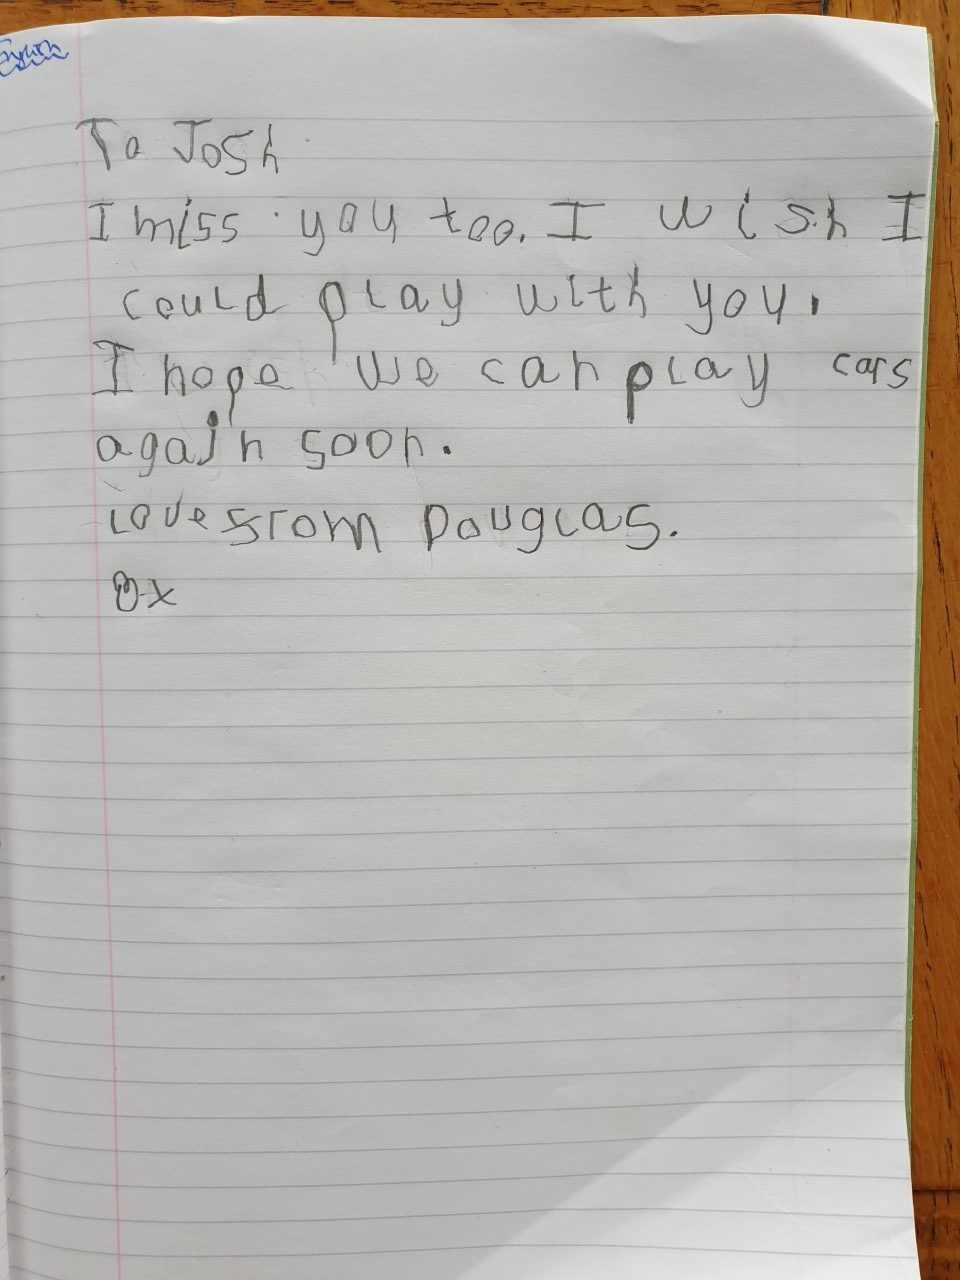 To Josh
I miss you too. I wish I
could play with you.
I hope we can play cars
again soon.
Love from Douglas.